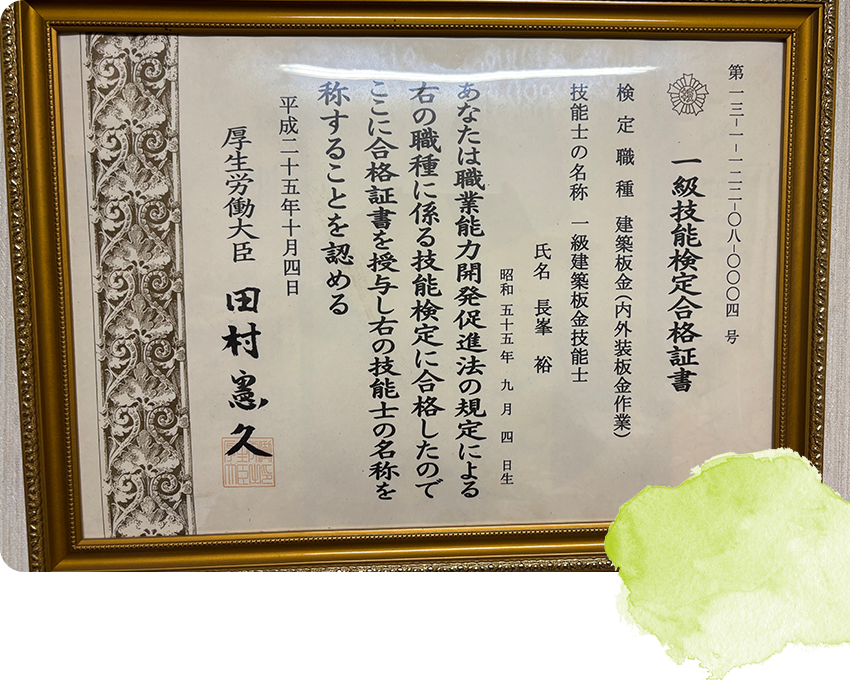 第一三-一-一二二-〇八-〇〇〇四 号
一級技能検定合格証書
検定職種 建築板金(内外装板金作業)
技能士の名称 一級建築板金技能士
氏名 長峯 裕
昭和 五十五年 九月 四日生
あなたは職業能力開発促進法の規定による
右の職種に係る技能検定に合格したので
ここに合格証書を授与し右の技能士の名称を
称することを認める
平成二十五年十月四日
厚生労働大臣 田村憲久